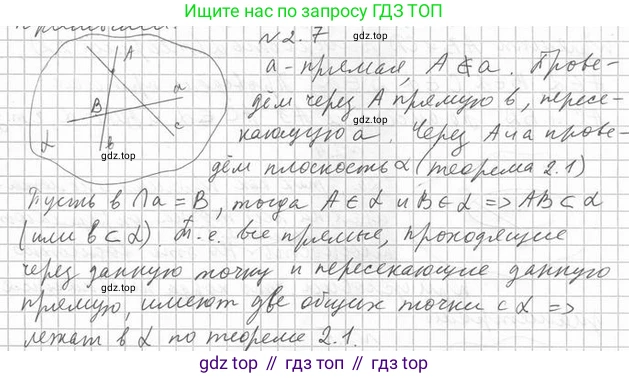 Ищите нас по запросу ГДЗ ТОП
N 2.7
A a B b c α
a - прямая, A ∉ a. Прове-
дём через A прямую b, пересе-
кающую a. Через A и a прове-
дём плоскость α (теорема 2.1)
Пусть b ∩ a = B, тогда A ∈ α и B ∈ α => AB ⊂ α
(или b ⊂ α). Т.е. все прямые, проходящие
через данную точку и пересекающие данную
прямую, имеют две общих точки с α =>
лежат в α по теореме 2.1.
gdz.top
gdz.top
gdz.top
gdz.top
gdz.top
gdz.top
gdz.top
gdz.top
gdz top // гдз топ // gdz top